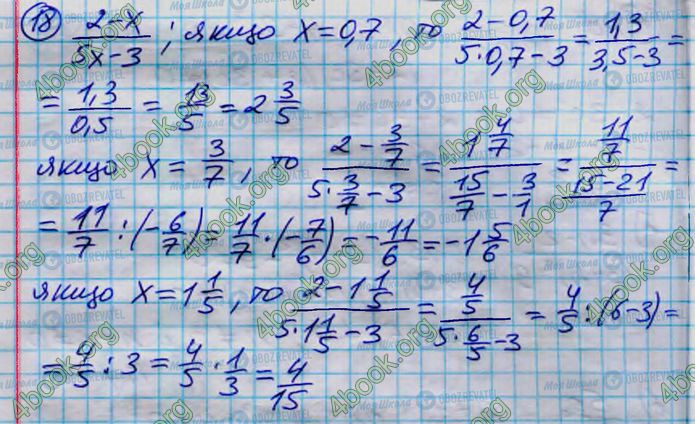 18) (2-x)/(5x-3); якщо x=0,7, то (2-0,7)/(5·0,7-3) = 1,3/(3,5-3) =
= 1,3/0,5 = 13/5 = 2 3/5
якщо x = 3/7, то (2 - 3/7)/(5·3/7 - 3) = (1 4/7)/(15/7 - 3/1) = (11/7)/((15-21)/7) =
= 11/7 : (-6/7) = 11/7 · (-7/6) = -11/6 = -1 5/6
якщо x = 1 1/5, то (2 - 1 1/5)/(5·1 1/5 - 3) = (4/5)/(5·6/5 - 3) = 4/5 : (6-3) =
= 4/5 : 3 = 4/5 · 1/3 = 4/15
4book.org
Моя Школа
OBOZREVATEL